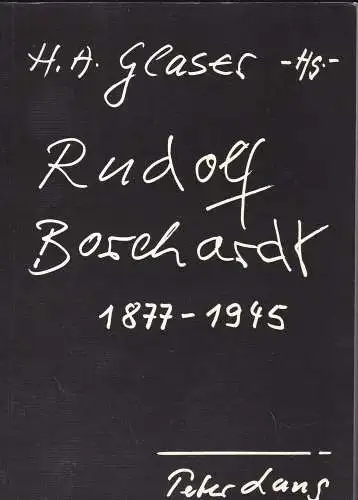 H. A. Glaser -Hg.-
Rudolf
Borchardt
1877-1945
Peter Lang